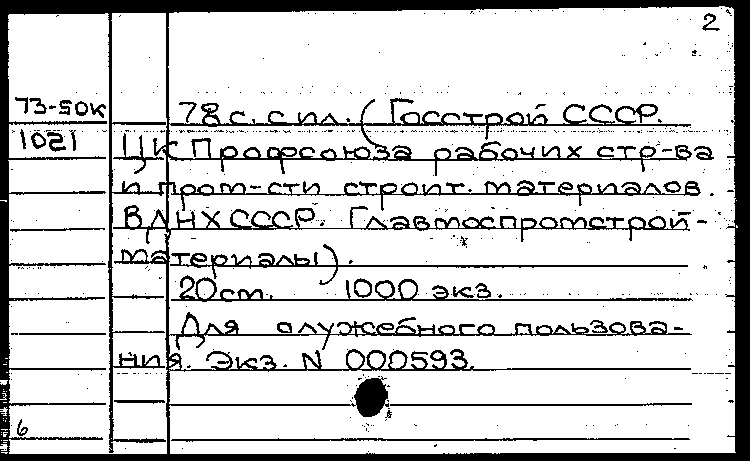 2
73-50к 78 с. с ил. (Госстрой СССР.
1021 ЦК Профсоюза рабочих стр-ва
и пром-сти строит. материалов.
ВДНХ СССР. Главмоспромстрой-
материалы).
20 см. 1000 экз.
Для служебного пользова-
ния. Экз. N 000593.
6